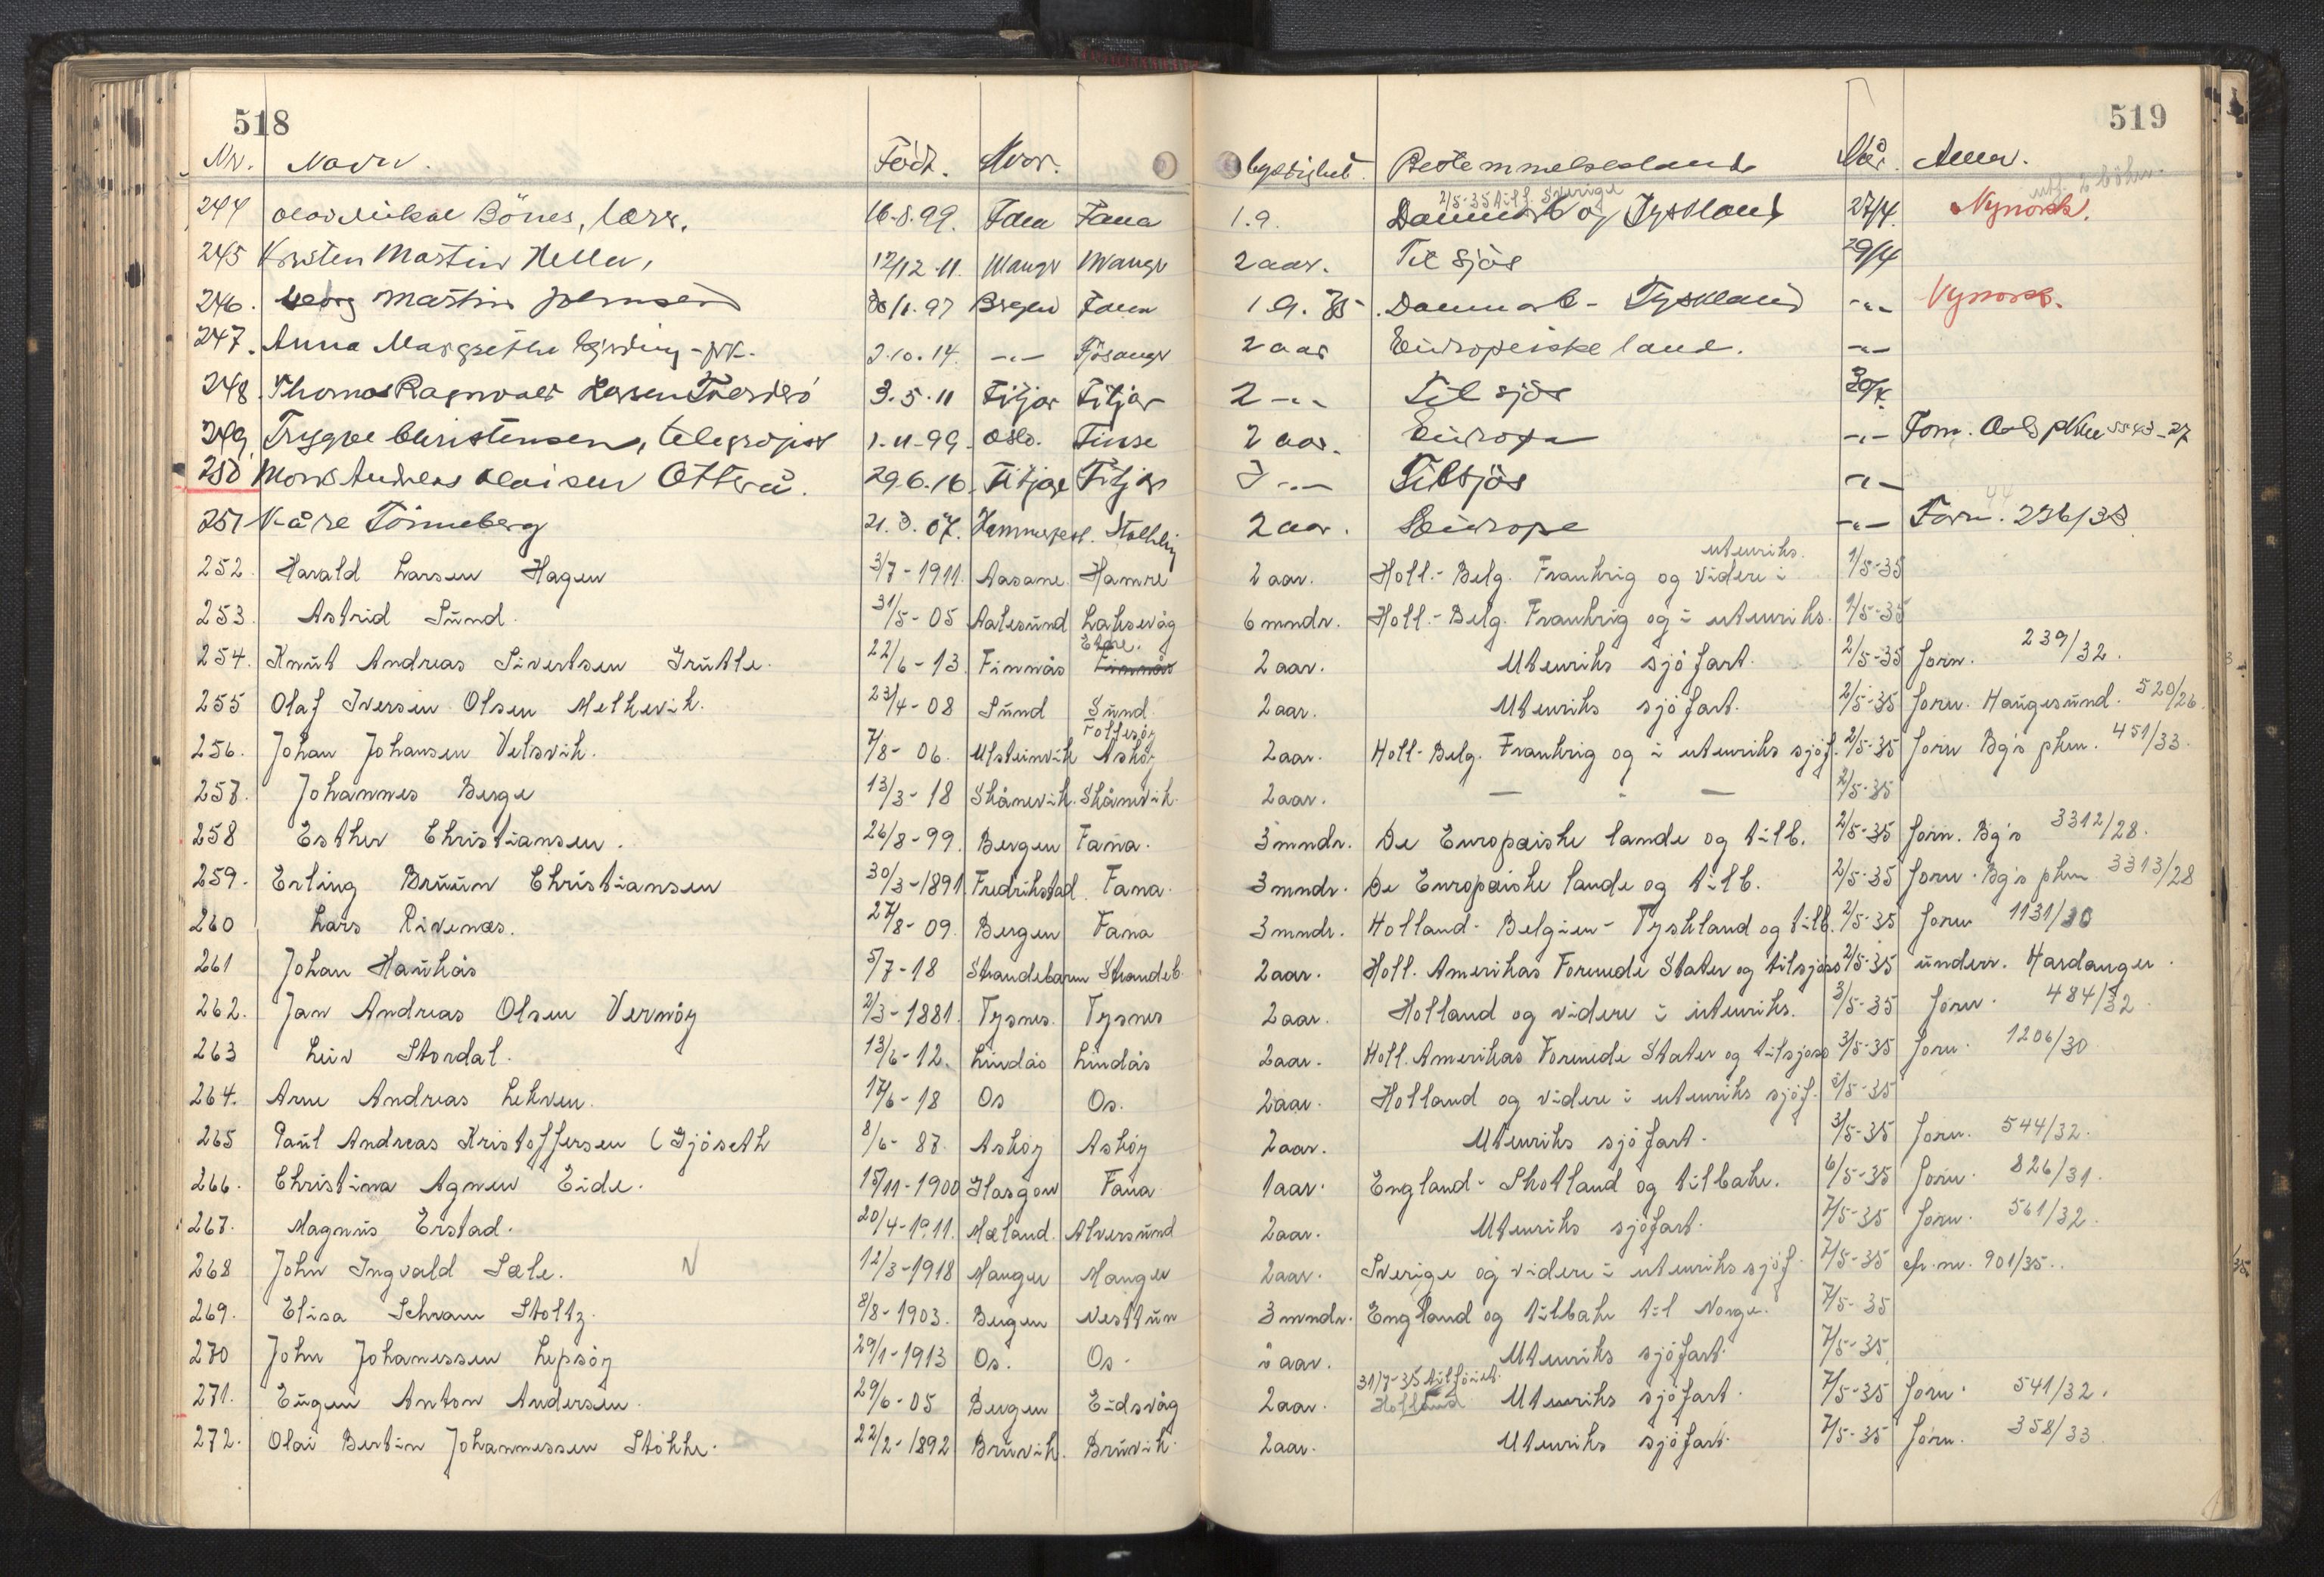 518
519
Nr. Navn. Født. Hvor. Gyldighet. Bestemmelsesland Når. Anm.
2/5-35 tilf. Sverige
244 Olav Mikal Bönes, lærer. 16-8.99. Fana Fana 1.9. Danmark og Tyskland 27/4. Nynorsk.
245 Karsten Martin Heller, 12/12-11. Manger Manger 2 aar. Til sjøs 29/4
246. Georg Martin Johnsen 1.97 Bergen Fana 1.9.35. Danmark - Tyskland -"- Nynorsk.
247. Anna Margrethe Gjerding - frk. 2.10.14. -"- Fjösanger 2 aar Europeiske land. -"-
248. Thomas Ragnvald Larsen 3.5.11 Fitjar Fitjar 2 -"- Til sjøs 30/4.
249. Trygve Christensen, telegrafist 1.11-99. Oslo. Finse 2 aar. Europa -"- Forn. 5543-27
250 Andreas Olaisen Otterå. 29.6.16. Fitjar Fitjar 2 -"- Til sjøs -"-
251 Kåre Tönneberg 21.3.07. Hammerfest. 2 aar. Europa -"- Forn. 236/33
utenriks.
252. Harald Larsen Hagen 3/7-1911. Aasane. Hamre 2 aar. Holl.- Belg. Frankrig og videre i 1/5-35
253. Astrid Sund. 31/5-05 Aalesund Laksevåg 6 mndr. Holl.- Belg. Frankrig og i utenriks. 1/5-35
Etne.
254. Knut Andreas Sivertsen Grutle. 22/6-13. Finnås Finnås 2 aar. Utenriks sjöfart. 2/5-35 forn. 239/32.
255 Olaf Iversen Olsen Melkevik. 23/4-08 Sund Sund 2 aar. Utenriks sjöfart. 2/5-35 forn. Haugesund. 520/26.
Follesöy
256. Johan Johansen Velsvik. 7/8-06. Ulsteinvik Asköy 2 aar. Holl- Belg. Frankrig og i utenriks sjöf. 2/5-35 forn Bg's pkm. 451/33.
257. Johannes Berge 13/3-18 Skånevik. Skånevik. 2 aar. — - — 2/5-35
258 Esther Christiansen. 26/8-99. Bergen Fana. 3 mndr. De Europæiske lande og tilb. 2/5-35 forn. Bg's 3312/28.
259. Erling Bruun Christiansen 30/3-1891 Fredrikstad. Fana. 3 mndr. De Europæiske lande og tilb. 2/5-35 forn. Bg's pkm 3313/28
260 Lars Rivenæs. 27/8-09. Bergen Fana 3 mndr. Holland- Belgien- Tyskland og tilb. 2/5-35 forn 1131/30
261 Johan Haukås 5/7-18 Strandebarm Strandeb. 2 aar. Holl. Amerikas Forenede Stater og tilsjøss 2/5-35 underr. Hardanger.
262. Jan Andreas Olsen Vernöy 2/3-1881. Tysnes. Tysnes 2 aar. Holland og videre i utenriks. 3/5-35 forn. 484/32.
263 Leiv Stordal. 13/6-12. Lindås Lindås 2 aar. Holl. Amerikas Forenede Stater og tilsjøss 3/5-35 forn. 1206/30
264. Arne Andreas Lekven. 17/6-18 Os Os. 2 aar. Holland og videre i utenriks sjöf. 3/5-35
265 Paul Andreas Kristoffersen (Gjöseth 8/6-87. Asköy Asköy 2 aar. Utenriks sjöfart. 3/5-35 forn. 544/32.
266. Christina Agnew Eide. 15/11-1900 Glasgow Fana 1 aar. England- Skotland og tilbake. 6/5-35 forn. 826/31.
267. Magnus Erstad. 20/4-1911. Mæland. Alversund 2 aar. Utenriks sjöfart. 7/5-35 forn. 561/32.
268 John Ingvald Sæle. N 12/3-1918 Manger Manger 2 aar. Sverige og videre i utenriks sjöf. 7/5-35 cfr. nr. 901/35..
269. Elisa Schram Stoltz. 8/8-1903. Bergen Nesttun 3 mndr. England og tilbake til Norge. 7/5-35
270 John Johanessen Lepsöy 29/1-1913 Os. Os- 2 aar. Utenriks sjöfart. 7/5-35
31/7-35 tilföiet
271. Eugen Anton Andersen. 29/6-05 Bergen Eidsvåg 2 aar. Holland Utenriks sjöfart. 7/5-35 forn. 541/32.
272. Olai Bertin Johannessen Stokke. 22/2-1892 Bruvik. Bruvik. 2 aar. Utenriks sjöfart. 7/5-35 forn. 358/33.